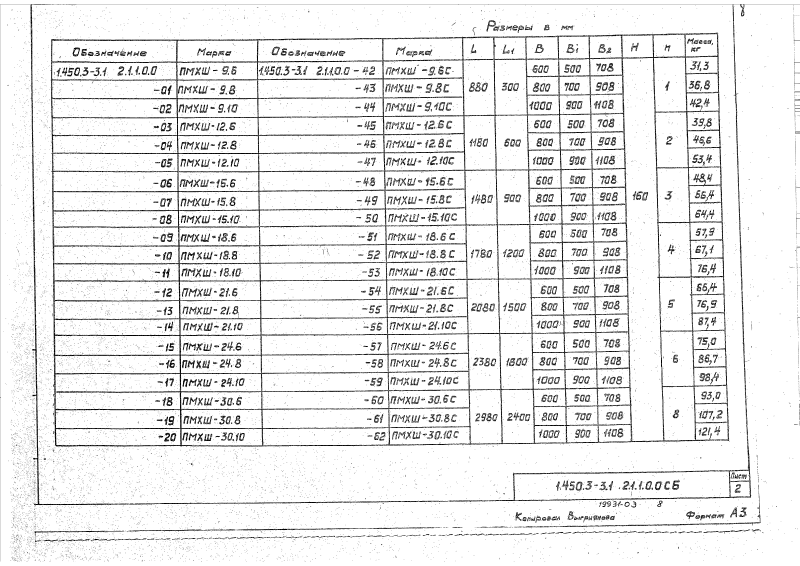 8
Размеры в мм
Обозначение Марка Обозначение Марка L L1 B B1 B2 H n Масса, кг
1.450.3-3.1 2.1.1.0.0 ПМХШ - 9.6 1.450.3-3.1 2.1.1.0.0 - 42 ПМХШ - 9.6С 880 300 600 500 708 160 1 31,3
-01 ПМХШ - 9.8 - 43 ПМХШ - 9.8С 800 700 908 36,8
-02 ПМХШ - 9.10 - 44 ПМХШ - 9.10С 1000 900 1108 42,4
-03 ПМХШ-12.6 -45 ПМХШ - 12.6С 1180 600 600 500 708 2 39,8
-04 ПМХШ-12.8 -46 ПМХШ - 12.8С 800 700 908 46,6
-05 ПМХШ-12.10 -47 ПМХШ - 12.10С 1000 900 1108 53,4
-06 ПМХШ-15.6 -48 ПМХШ - 15.6С 1480 900 600 500 708 3 48,4
-07 ПМХШ-15.8 -49 ПМХШ - 15.8С 800 700 908 56,4
-08 ПМХШ-15.10 -50 ПМХШ-15.10С 1000 900 1108 64,4
-09 ПМХШ-18.6 -51 ПМХШ-18.6С 1780 1200 600 500 708 4 57,9
-10 ПМХШ-18.8 -52 ПМХШ-18.8С 800 700 908 67,1
-11 ПМХШ-18.10 -53 ПМХШ-18.10С 1000 900 1108 76,4
-12 ПМХШ-21.6 -54 ПМХШ-21.6С 2080 1500 600 500 708 5 66,4
-13 ПМХШ-21.8 -55 ПМХШ-21.8С 800 700 908 76,9
-14 ПМХШ-21.10 -56 ПМХШ-21.10С 1000 900 1108 87,4
-15 ПМХШ-24.6 -57 ПМХШ-24.6С 2380 1800 600 500 708 6 75,0
-16 ПМХШ-24.8 -58 ПМХШ-24.8С 800 700 908 86,7
-17 ПМХШ-24.10 -59 ПМХШ-24.10С 1000 900 1108 98,4
-18 ПМХШ-30.6 -60 ПМХШ-30.6С 2980 2400 600 500 708 8 93,0
-19 ПМХШ-30.8 -61 ПМХШ-30.8С 800 700 908 107,2
-20 ПМХШ-30.10 -62 ПМХШ-30.10С 1000 900 1108 121,4
1.450.3-3.1 .2.1.1.0.0 СБ Лист 2
19931-03 8
Копировал Формат А3